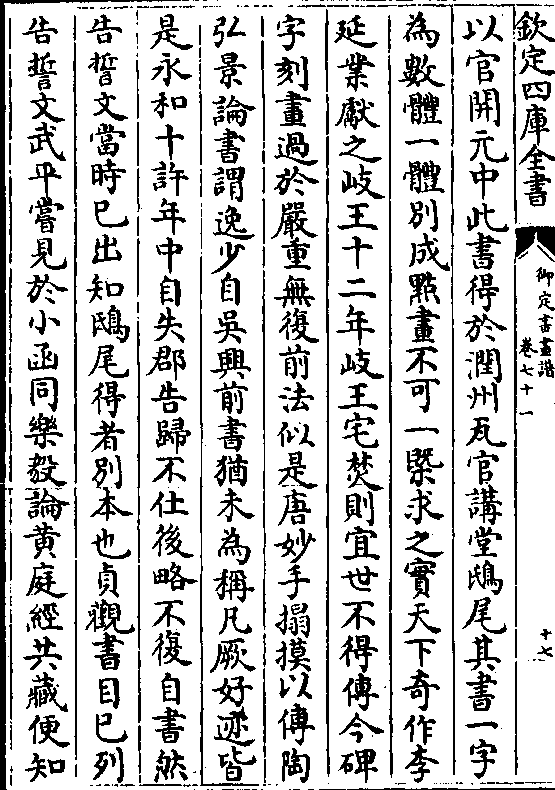 欽定四庫全書
御定書畫譜
卷七十一
十七
以官開元中此書得於潤州瓦官講堂鴟尾其書一字
為數體一體別成點畫不可一槩求之實天下奇作李
延業獻之岐王十二年岐王宅焚則宜世不得傳今碑
字刻畫過於嚴重無復前法似是唐妙手搨摸以傳陶
弘景論書謂逸少自吳興前書猶未為稱凡厥好迹皆
是永和十許年中自失郡告歸不仕後略不復自書然
告誓文當時已出知鴟尾得者別本也貞觀書目已列
告誓文武平嘗見於小函同樂毅論黃庭經共藏便知